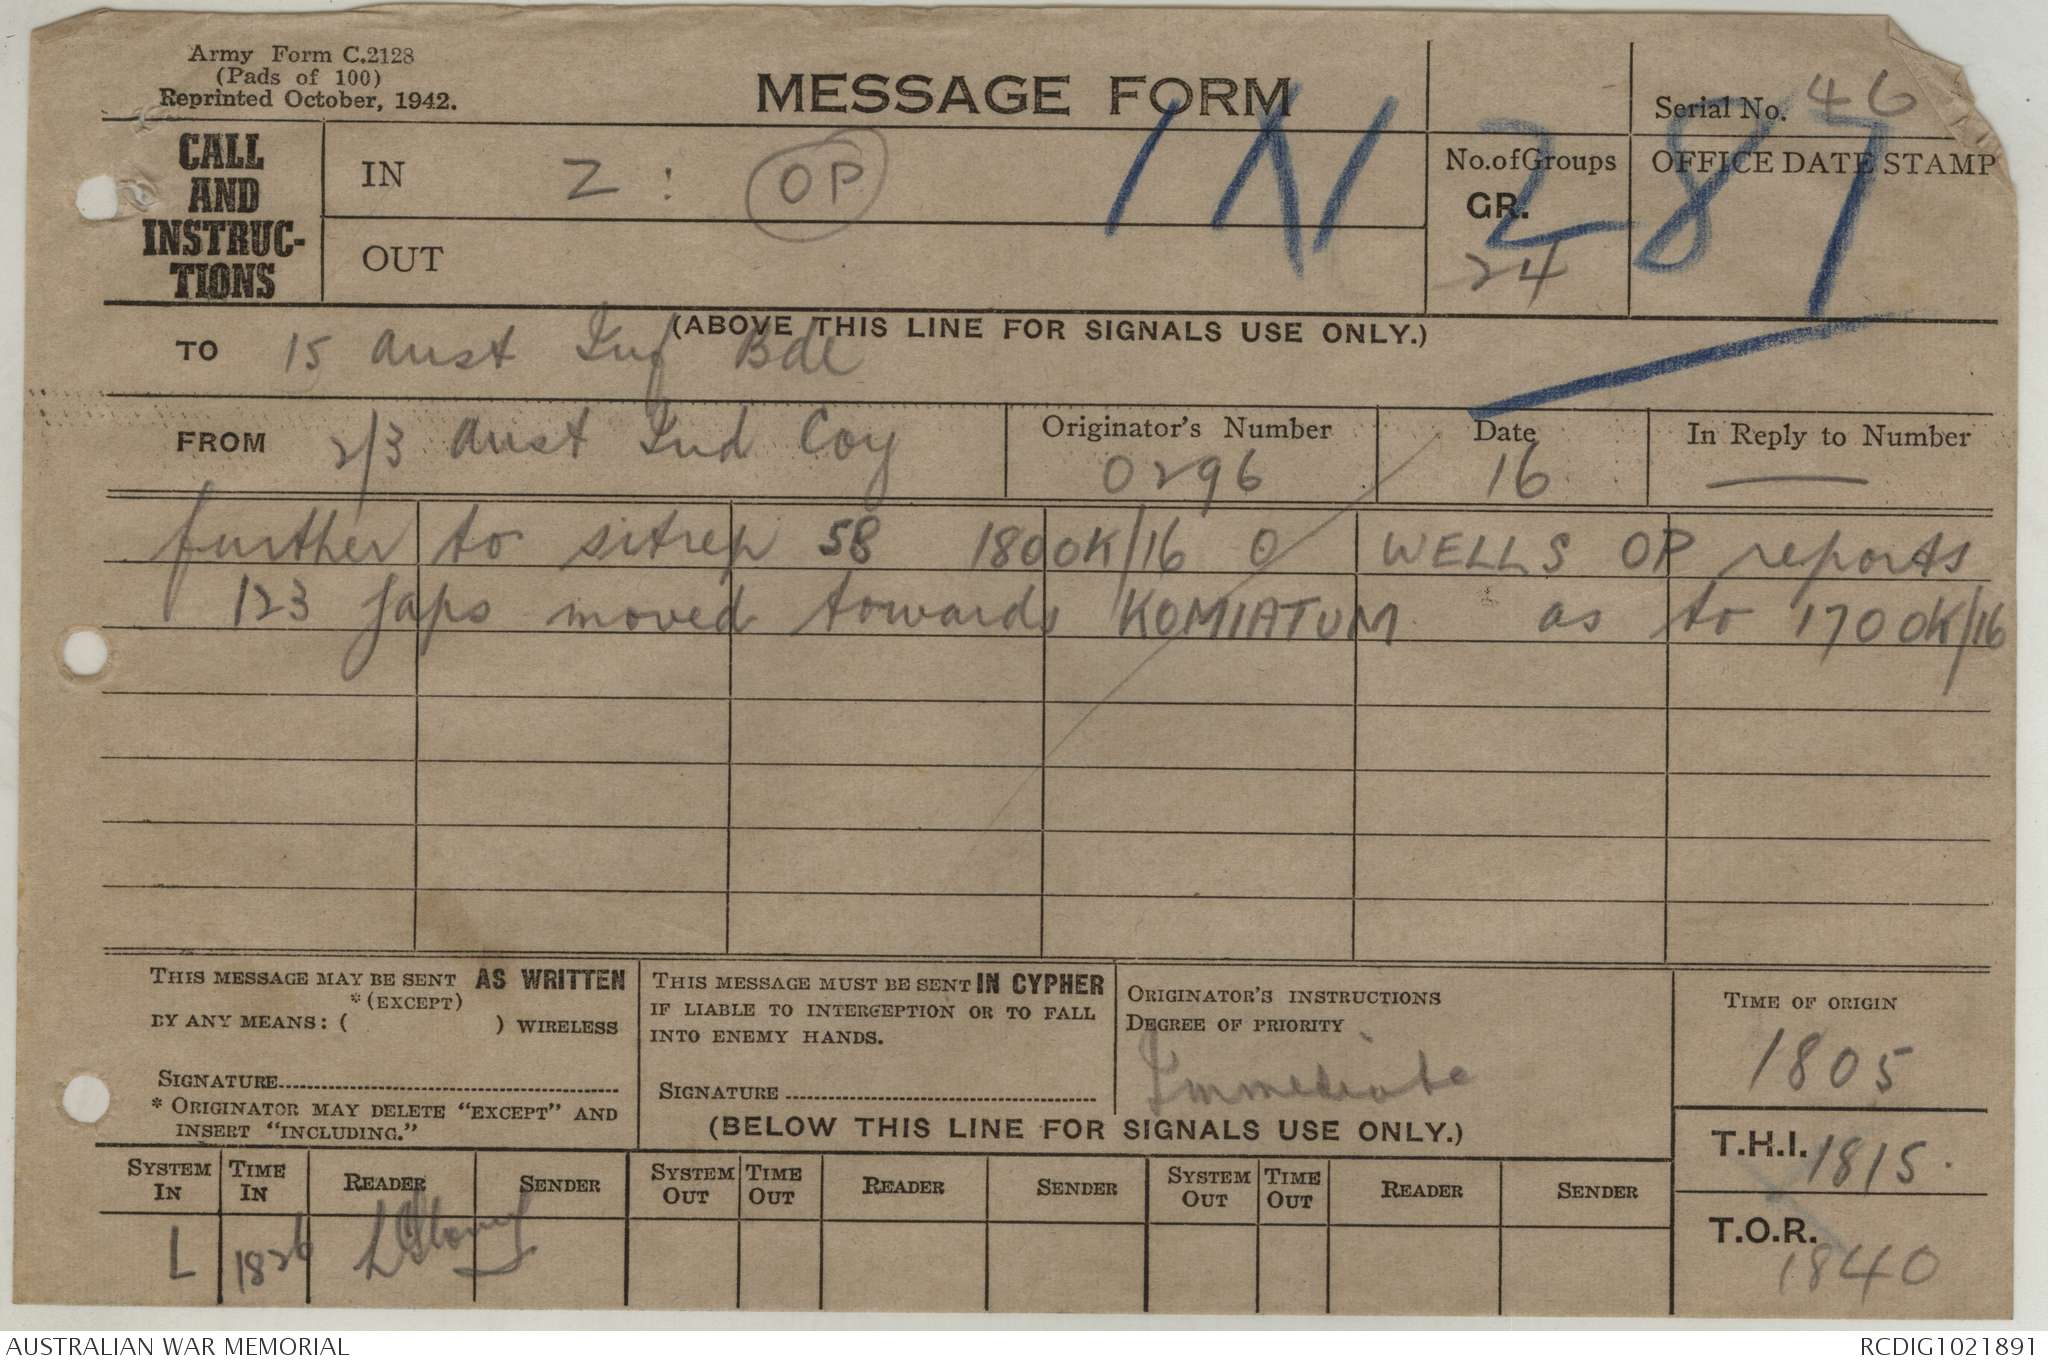 Army Form C.2128
(Pads of 100)
Reprinted October, 1942.
MESSAGE FORM
Serial No. 46
IN 287
CALL AND INSTRUC-TIONS
IN Z : OP
No. of Groups
GR.
24
OFFICE DATE STAMP
OUT
(ABOVE THIS LINE FOR SIGNALS USE ONLY.)
TO 15 Aust Inf Bde
FROM 2/3 Aust Ind Coy
Originator's Number
0296
Date
16
In Reply to Number
—
further to sitrep 58 1800K/16 O WELLS OP reports
123 Japs moved towards KOMIATUM as to 1700K/16
THIS MESSAGE MAY BE SENT AS WRITTEN
*(EXCEPT)
BY ANY MEANS: ( ) WIRELESS
SIGNATURE
* ORIGINATOR MAY DELETE "EXCEPT" AND
INSERT "INCLUDING."
THIS MESSAGE MUST BE SENT IN CYPHER
IF LIABLE TO INTERCEPTION OR TO FALL
INTO ENEMY HANDS.
SIGNATURE
ORIGINATOR'S INSTRUCTIONS
DEGREE OF PRIORITY
Immediate
TIME OF ORIGIN
1805
(BELOW THIS LINE FOR SIGNALS USE ONLY.)
T.H.I. 1815.
T.O.R. 1840
SYSTEM IN TIME IN READER SENDER SYSTEM OUT TIME OUT READER SENDER SYSTEM OUT TIME OUT READER SENDER
L 1826
AUSTRALIAN WAR MEMORIAL
RCDIG1021891